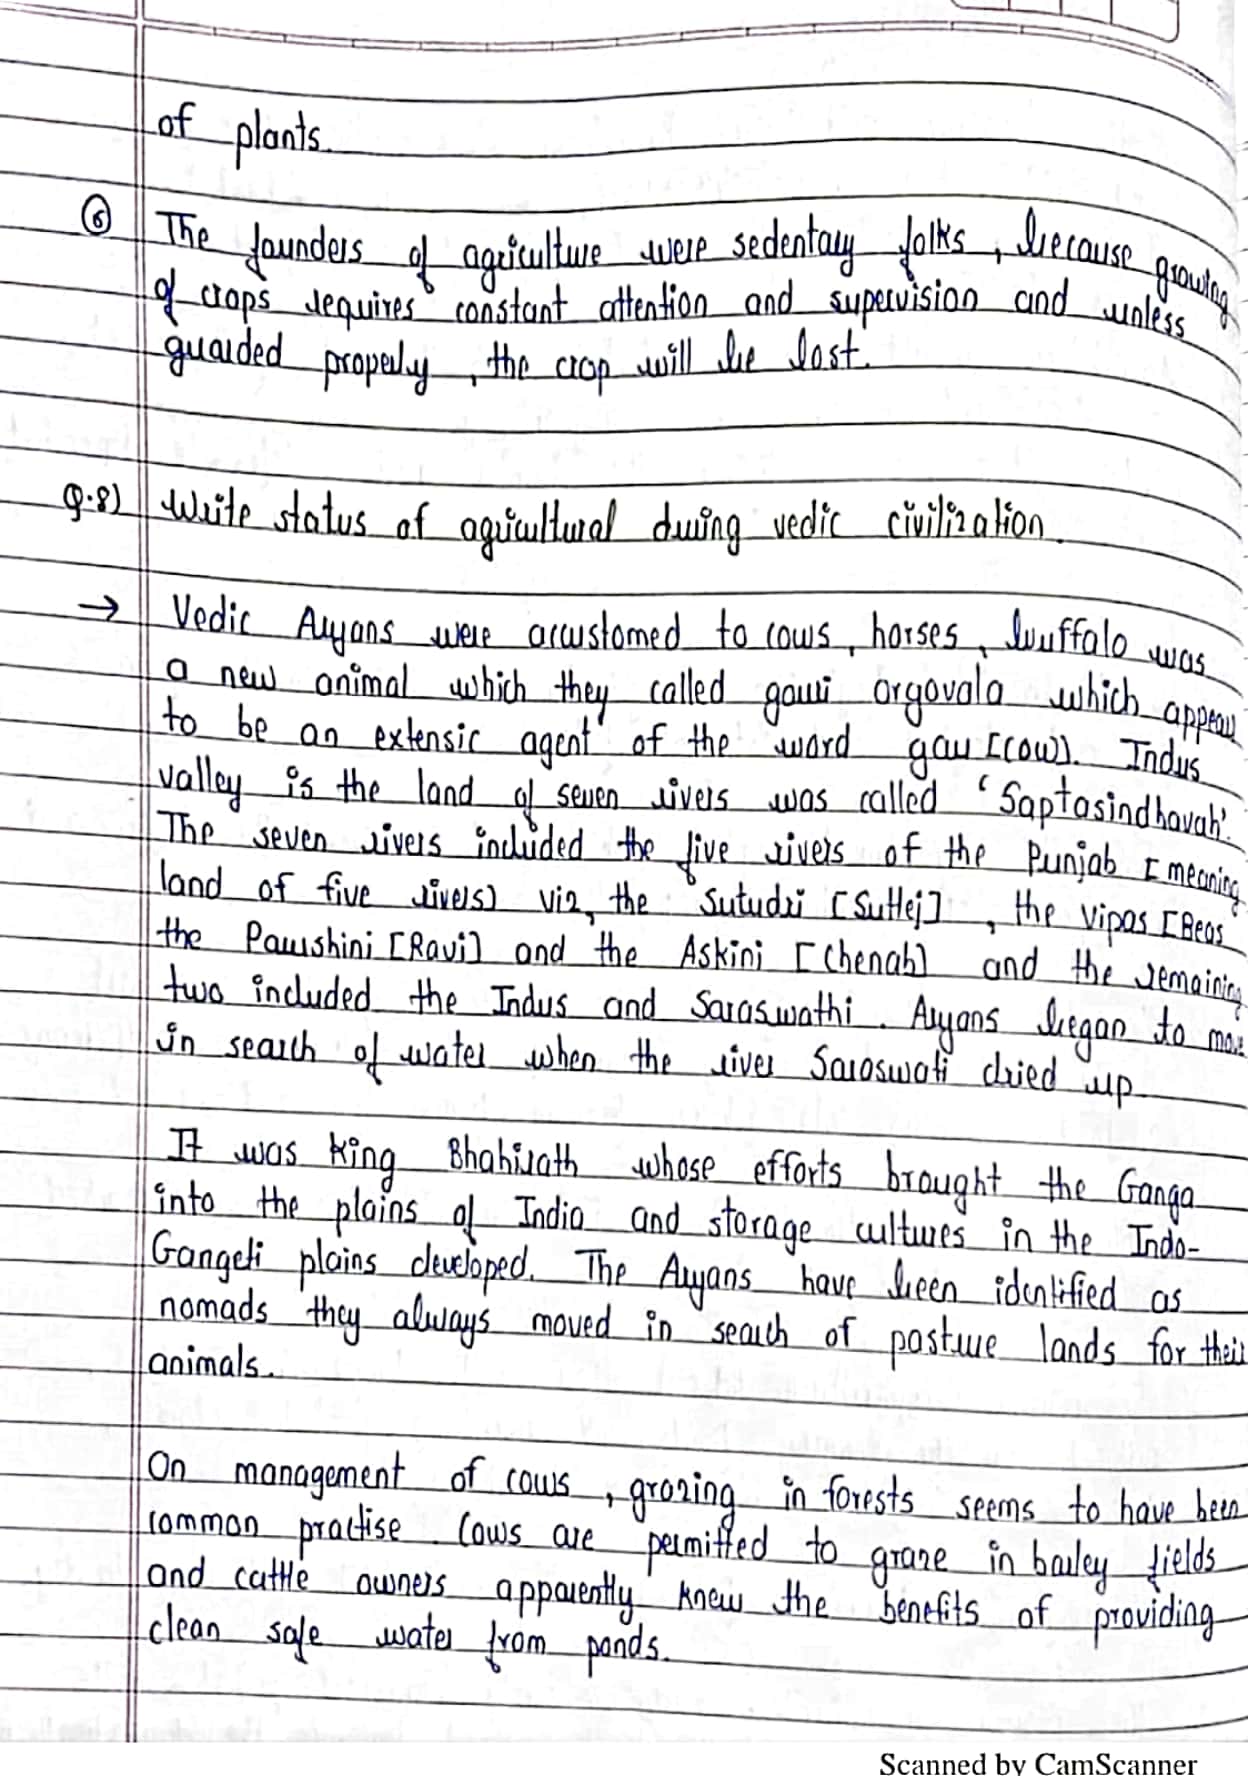 of plants.
⑥ The founders of agriculture were sedentary folks, because growing
of crops requires constant attention and supervision and unless
guarded properly, the crop will be lost.
Q.8) Write status of agricultural during vedic civilization.
→ Vedic Aryans were accustomed to cows, horses, buffalo was
a new animal which they called gauri orgovala which appear
to be an extensic agent of the word gau [cow). Indus
valley is the land of seven rivers was called 'Saptasindhavah'.
The seven rivers included the five rivers of the Punjab [meaning
land of five rivers) viz, the Sutudri [Sutlej], the vipas [Beas
the Paurshini [Ravi] and the Askini [Chenab] and the remaining
two included the Indus and Saraswathi. Aryans began to move
in search of water when the river Saraswati dried up
It was King Bhahirath whose efforts brought the Ganga
into the plains of India and storage cultures in the Indo-
Gangeti plains developed. The Aryans have been identified as
nomads they always moved in search of pasture lands for their
animals.
On management of cows, grazing in forests seems to have been
common practise. Cows are permitted to graze in barley fields
and cattle owners apparently knew the benefits of providing
clean safe water from ponds.
Scanned by CamScanner